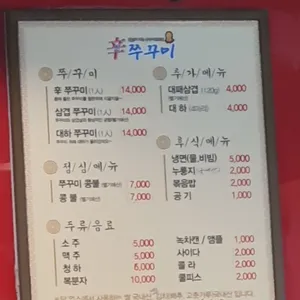 辛쭈꾸미
쭈/꾸/미
辛 쭈꾸미 (1人) 14,000
삼겹 쭈꾸미 (1人) 14,000
대하 쭈꾸미 (1人) 14,000
추/가/메/뉴
대패삼겹 (120g) 4,000
대 하 4,000
점/심/메/뉴
쭈꾸미 콩불 7,000
콩 불 7,000
후/식/메/뉴
냉면(물,비빔) 5,000
누룽지 2,000
볶음밥 2,000
공 기 1,000
주/류/음/료
소 주 5,000
맥 주 5,000
청 하 6,000
복분자 10,000
녹차캔 / 앰플 1,000
사이다 2,000
콜 라 2,000
쿨피스 2,000